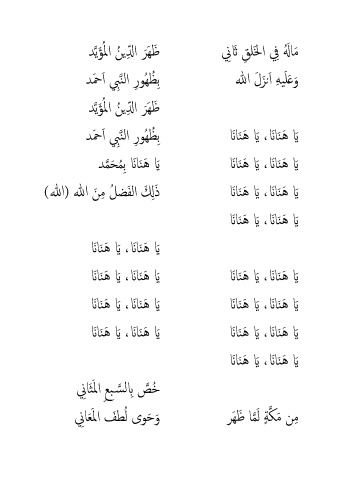 ظَهَرَ الدِّينُ المُؤَيَّد
بِظُهُورِ النَّبِي اَحمَد
ظَهَرَ الدِّينُ المُؤَيَّد
بِظُهُورِ النَّبِي اَحمَد
يَا هَنَانَا بِمُحَمَّد
ذَلِكَ الفَضلُ مِنَ الله (الله)
يَا هَنَانَا، يَا هَنَانَا
يَا هَنَانَا، يَا هَنَانَا
يَا هَنَانَا، يَا هَنَانَا
يَا هَنَانَا، يَا هَنَانَا
خُصَّ بِالسَّبعِ المَثَانِي
وَحَوى لُطفَ المَعَانِي
مَالَهُ فِي الخَلقِ ثَانِي
وَعَلَيهِ اَنزَلَ الله
يَا هَنَانَا، يَا هَنَانَا
يَا هَنَانَا، يَا هَنَانَا
يَا هَنَانَا، يَا هَنَانَا
يَا هَنَانَا، يَا هَنَانَا
يَا هَنَانَا، يَا هَنَانَا
يَا هَنَانَا، يَا هَنَانَا
يَا هَنَانَا، يَا هَنَانَا
يَا هَنَانَا، يَا هَنَانَا
مِن مَكَّةٍ لَمَّا ظَهَر